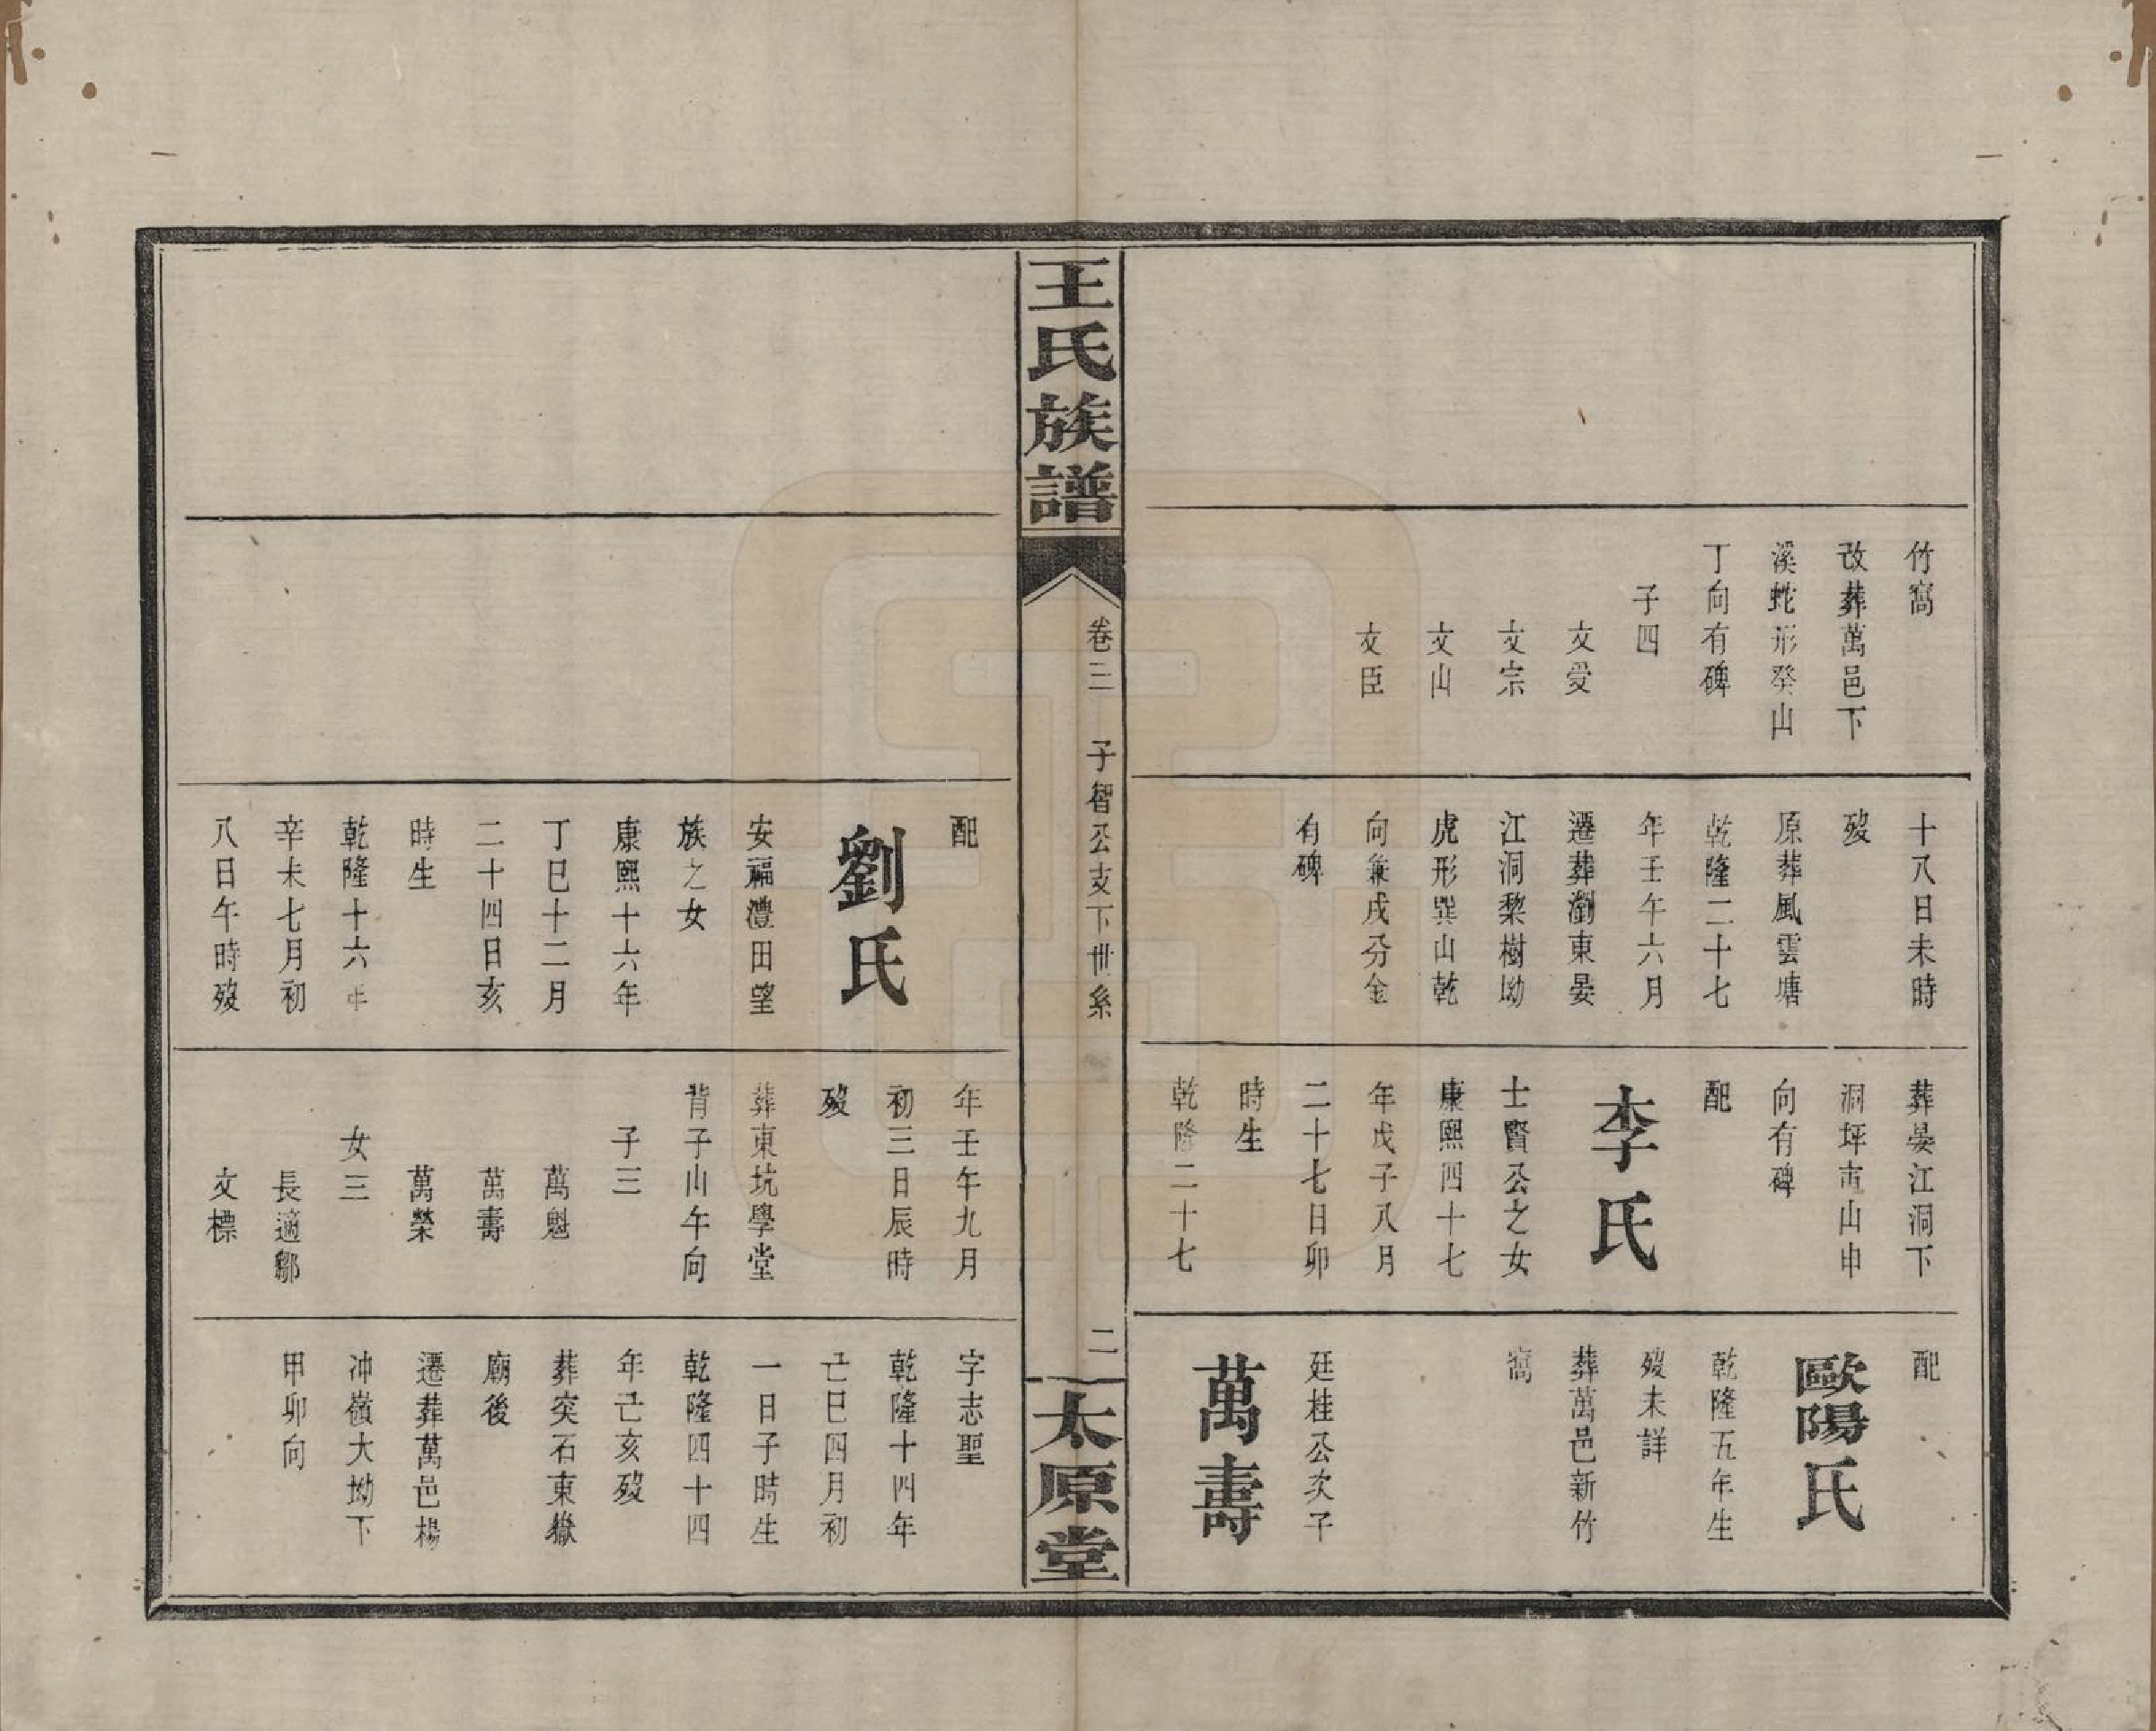 竹窩
改葬萬邑下
溪蛇形癸山
丁向有碑
子四
文愛
文宗
文山
文臣
十八日未時
歿
原葬風雲塘
乾隆二十七
年壬午六月
遷葬瀏東晏
江洞黎樹坳
虎形巽山乾
向兼戌分金
有碑
葬晏江洞下
洞坪 山申
向有碑
配
李氏
士賢公之女
康熙四十七
年戊子八月
二十七日卯
時生
乾隆二十七
配
歐陽氏
乾隆五年生
歿未詳
葬萬邑新竹
窩
廷桂公次子
萬壽
王氏族譜
卷三 子智公支下世系
二
太原堂
配
劉氏
安福澧田望
族之女
康熙十六年
丁巳十二月
二十四日亥
時生
乾隆十六年
辛未七月初
八日午時歿
年壬午九月
初三日辰時
歿
葬東坑學堂
背子山午向
子三
萬魁
萬壽
萬榮
女三
長適鄒
文標
字志聖
乾隆十四年
己巳四月初
一日子時生
乾隆四十四
年己亥歿
葬突石東嶽
廟後
遷葬萬邑楊
冲嶺大坳下
甲卯向